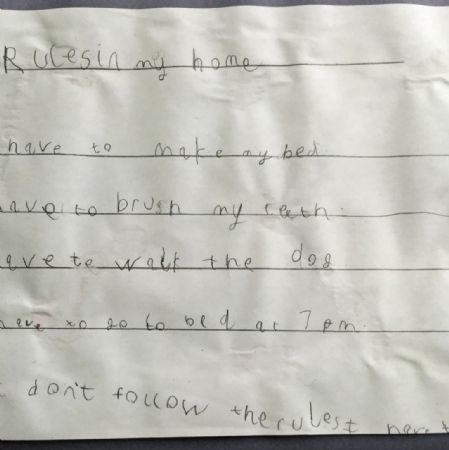 Rules in my home
have to make my bed.
have to brush my teeth.
ave to walk the dog
have to go to bed at 7 pm.
don't follow the rules I have t